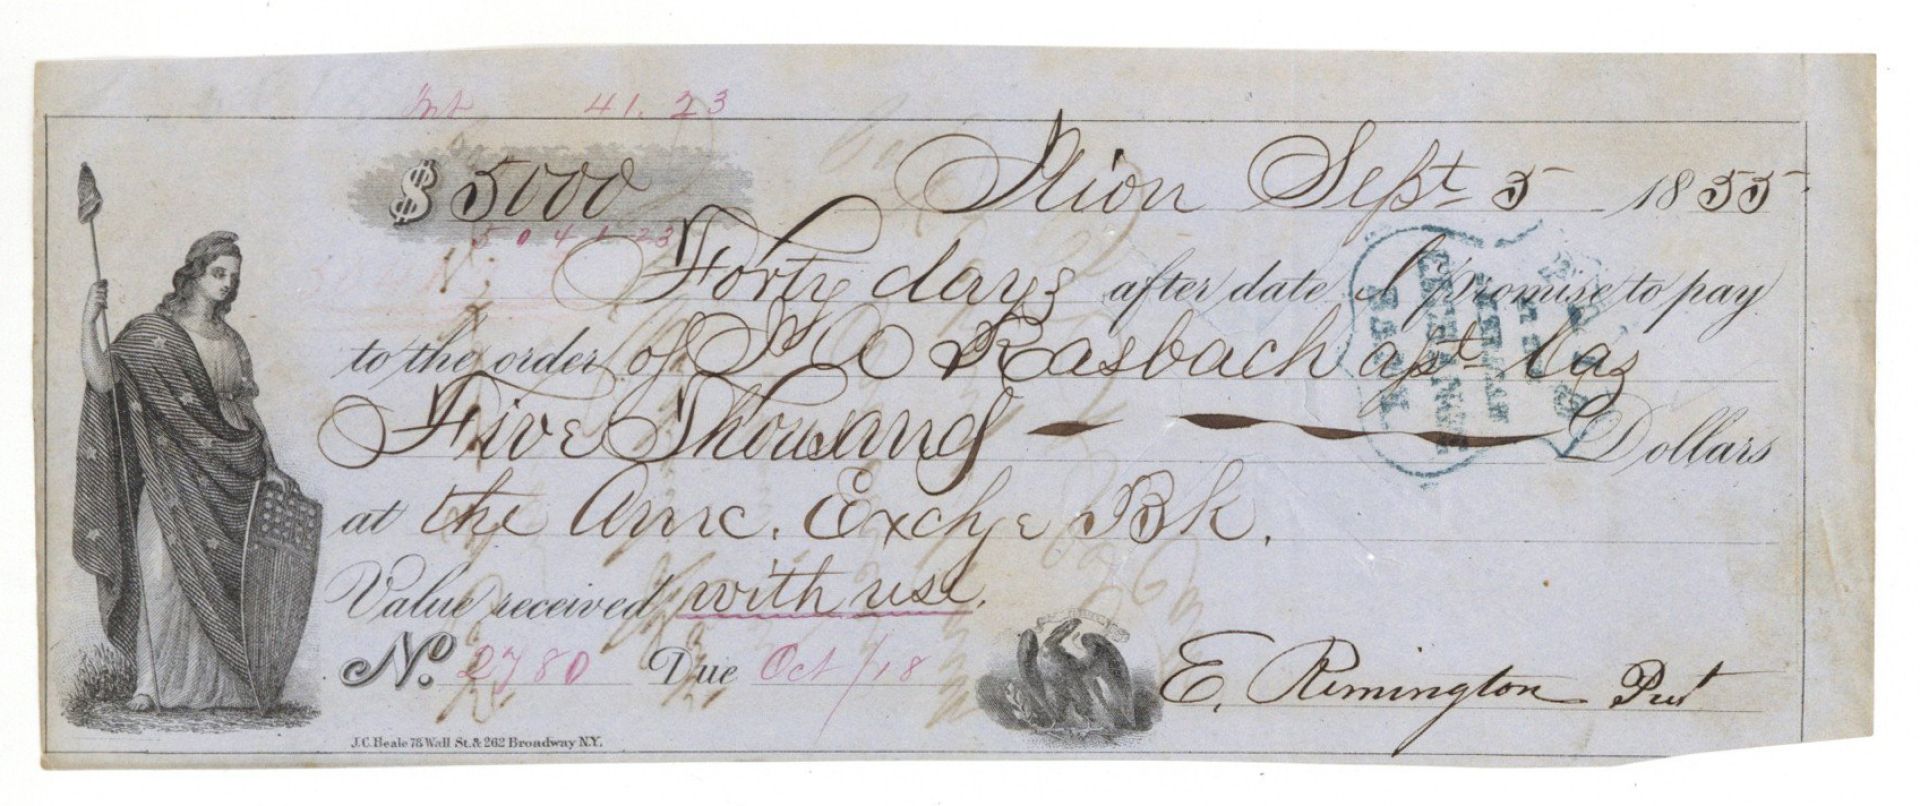 Int 41.23
$ 5000 Ilion Sept 5 1855
5041.23
Forty days after date I promise to pay
to the order of P A Rasbach aft Cas
Five Thousand Dollars
at the Amc. Exchge Bk.
Value received with use.
No. 2780 Due Oct / 18 E. Remington Prest
J.C. Beale 78 Wall St. & 262 Broadway N.Y.